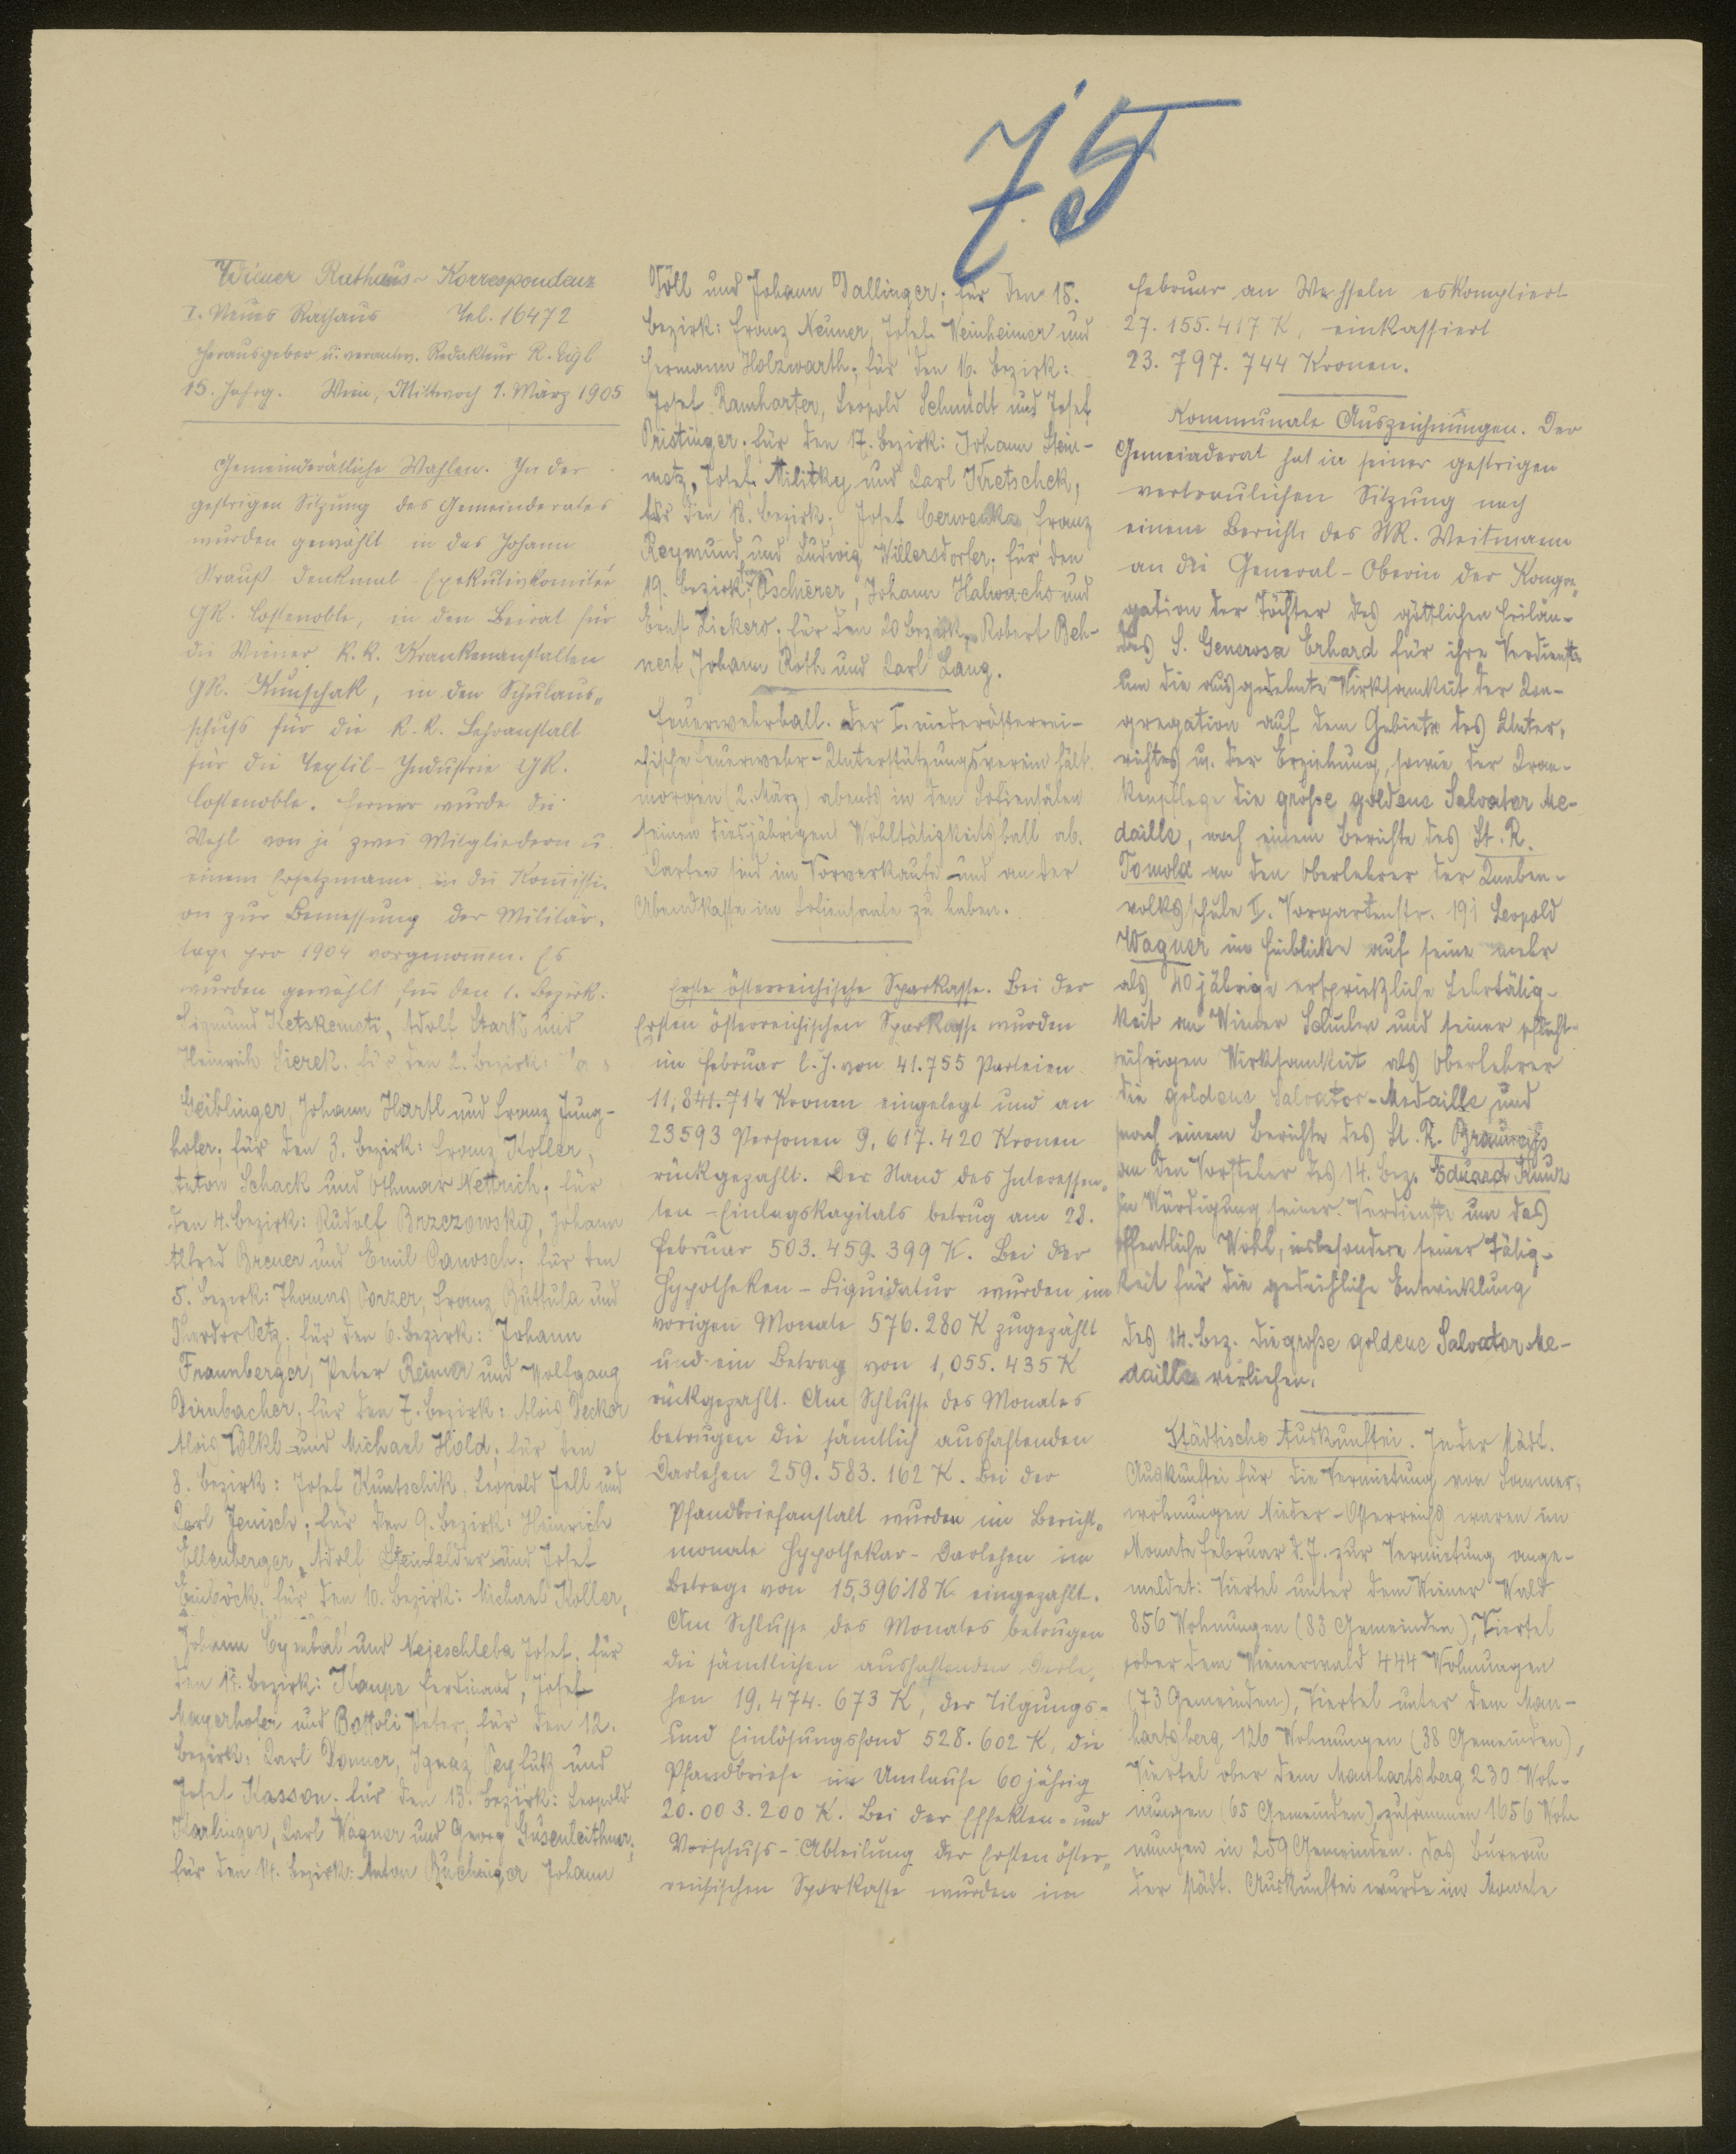 75
Wiener Rathaus-Korrespondenz
I. Neues Rathaus Tel. 16472
Herausgeber u. verantw. Redakteur R. Eigl
15. Jahrg. Wien, Mittwoch 1. März 1905
Gemeinderätliche Wahlen. In der
gestrigen Sitzung des Gemeinderates
wurden gewählt in das Johann
Strauß-Denkmal-Exekutivkomitee
GR. Costenoble, in den Beirat für
die Wiener k.k. Krankenanstalten
GR. Kunschak, in den Schulaus-
schuss für die k.k. Lehranstalt
für die Textil-Industrie GR.
Costenoble. Ferner wurde die
Wahl von je zwei Mitgliedern u.
einem Ersatzmann in die Kom̄issi-
on zur Bemessung der Militär-
taxe pro 1904 vorgenom̄en. Es
wurden gewählt für den 1. Bezirk:
Sigmund Ketskemeti, Adolf Stark und
Heinrich Sierek. für den 2. Bezirk:
Geiblinger, Johann Hartl und Franz Jung-
hofer; für den 3. Bezirk: Franz Kofler,
Anton Schack und Othmar Nettrich; für
den 4. Bezirk: Rudolf Brzezowsky, Johann
Alfred Brener und Emil Panosch; für den
5. Bezirk: Thomas Porzer, Franz Buttula und
Theodor Petz; für den 6. Bezirk: Johann
Fraunberger, Peter Reiner und Wolfgang
Dirnbacher; für den 7. Bezirk: Alois Decker
Alois Völkl und Michael Hold; für den
8. Bezirk: Josef Kuntschik, Leopold Zell und
Karl Jenisch; für den 9. Bezirk: Heinrich
Ellenberger, Adolf Steinfelder und Josef
Einböck; für den 10. Bezirk: Michael Koller,
Johann Cymbal und Nejeschleba Josef; für
den 11. Bezirk: Kaupe Ferdinand, Josef
Mayerhofer und Bottoli Peter; für den 12.
Bezirk: Karl Donner, Ignaz Peyfuß und
Josef Kasson; für den 13. Bezirk: Leopold
Karlinger, Karl Wagner und Georg Gusenleithner;
für den 14. Bezirk: Anton Buchinger Johann
Töll und Johann Dallinger; für den 15.
Bezirk: Franz Neuner, Josef Weinheimer und
Hermann Holzwarth; für den 16. Bezirk:
Josef Ramharter, Leopold Schmidt und Josef
Pristinger. für den 17. Bezirk: Johann Stein-
metz, Josef Militky und Karl Kretschek;
für den 18. Bezirk; Josef Cerwenka, Franz
Reymund und Ludwig Willersdorfer; für den
19. Bezirk: Franz Oscherer, Johann Halwachs und
Ernst Zickero. für den 20 Bezirk, Robert Beh-
nert Johann Roth und Karl Lang.
Feuerwehrball. Der I. niederösterrei-
chische Feuerwehr-Unterstützungsverein hält
morgen (2. März) abends in den Sofiensälen
seinen diesjährigen Wohltätigkeitsball ab.
Karten sind im Vorverkaufe und an der
Abendkasse im Sofiensaale zu haben.
Erste österreichische Sparkasse. Bei der
Ersten österreichischen Sparkasse wurden
im Februar l. J. von 41.755 Parteien
11,841.714 Kronen eingelegt und an
23593 Personen 9,617.420 Kronen
rückgezahlt. Der Stand des Interessen-
ten-Einlagskapitals betrug am 28.
Februar 503.459.399 K. Bei der
Hypotheken-Liquidatur wurden im
vorigen Monate 576.280 K zugezählt
und ein Betrag von 1,055.435 K
rückgezahlt. Am Schlusse des Monates
betrugen die sämtlich aushaftenden
Darlehen 259.583.162 K. Bei der
Pfandbriefanstalt wurden im Bericht-
monate Hypothekar-Darlehen im
Betrage von 15,396.18 K eingezahlt.
Am Schlusse des Monates betrugen
die sämtlichen aushaftenden Darle-
hen 19,474.673 K, der Tilgungs-
und Einlösungsfond 528.602 K, die
Pfandbriefe im Umlaufe 60 jährig
20.003.200 K. Bei der Effekten- und
Vorschuss-Abteilung der Ersten öster-
reichischen Sparkasse wurden im
Februar an Wechseln eskomptiert
27.155.417 K, einkassiert
23.797.744 Kronen.
Kommunale Auszeichnungen. Der
Gemeinderat hat in seiner gestrigen
vertraulichen Sitzung nach
einem Berichte des StR. Weitmann
an die General-Oberin der Kongre-
gation der Töchter des göttlichen Heilan-
des S. Generosa Erhard für ihre Verdienste
um die ausgedehnte Wirksamkeit der Kon-
gregation auf dem Gebiete des Unter-
richtes u. der Erziehung, sowie der Kran-
kenpflege die große goldene Salvator Me-
daille, nach einem Berichte des St. R.
Tomola an den Oberlehrer der Knaben-
volksschule II. Vorgartenstr. 191 Leopold
Wagner im Hinblicke auf seine mehr
als 40 jährige ersprießliche Lehrtätig-
keit an Wiener Schulen und seiner pflicht-
eifrigen Wirksamkeit als Oberlehrer
die goldene Salvator-Medaille und
nach einem Berichte des St. R. Brauneiß
an den Vorsteher des 14. Bez. Eduard Kunz
in Würdigung seiner Verdienste um das
öffentliche Wohl, insbesondere seiner Tätig-
keit für die gedeihliche Entwicklung
des 14. Bez. die große goldene Salvator Me-
daille verliehen.
Städtische Auskunftei. In der städt.
Auskunftei für die Vermietung von Sommer-
wohnungen Nieder-Österreichs waren im
Monate Februar d. J. zur Vermietung ange-
meldet: Viertel unter dem Wiener Wald
856 Wohnungen (83 Gemeinden), Viertel
ober dem Wienerwald 444 Wohnungen
(73 Gemeinden), Viertel unter dem Man-
hartsberg 126 Wohnungen (38 Gemeinden),
Viertel ober dem Manhartsberg 230 Woh-
nungen (65 Gemeinden), zusammen 1656 Woh
nungen in 259 Gemeinden. Das Bureau
der städt. Auskunftei wurde im Monate